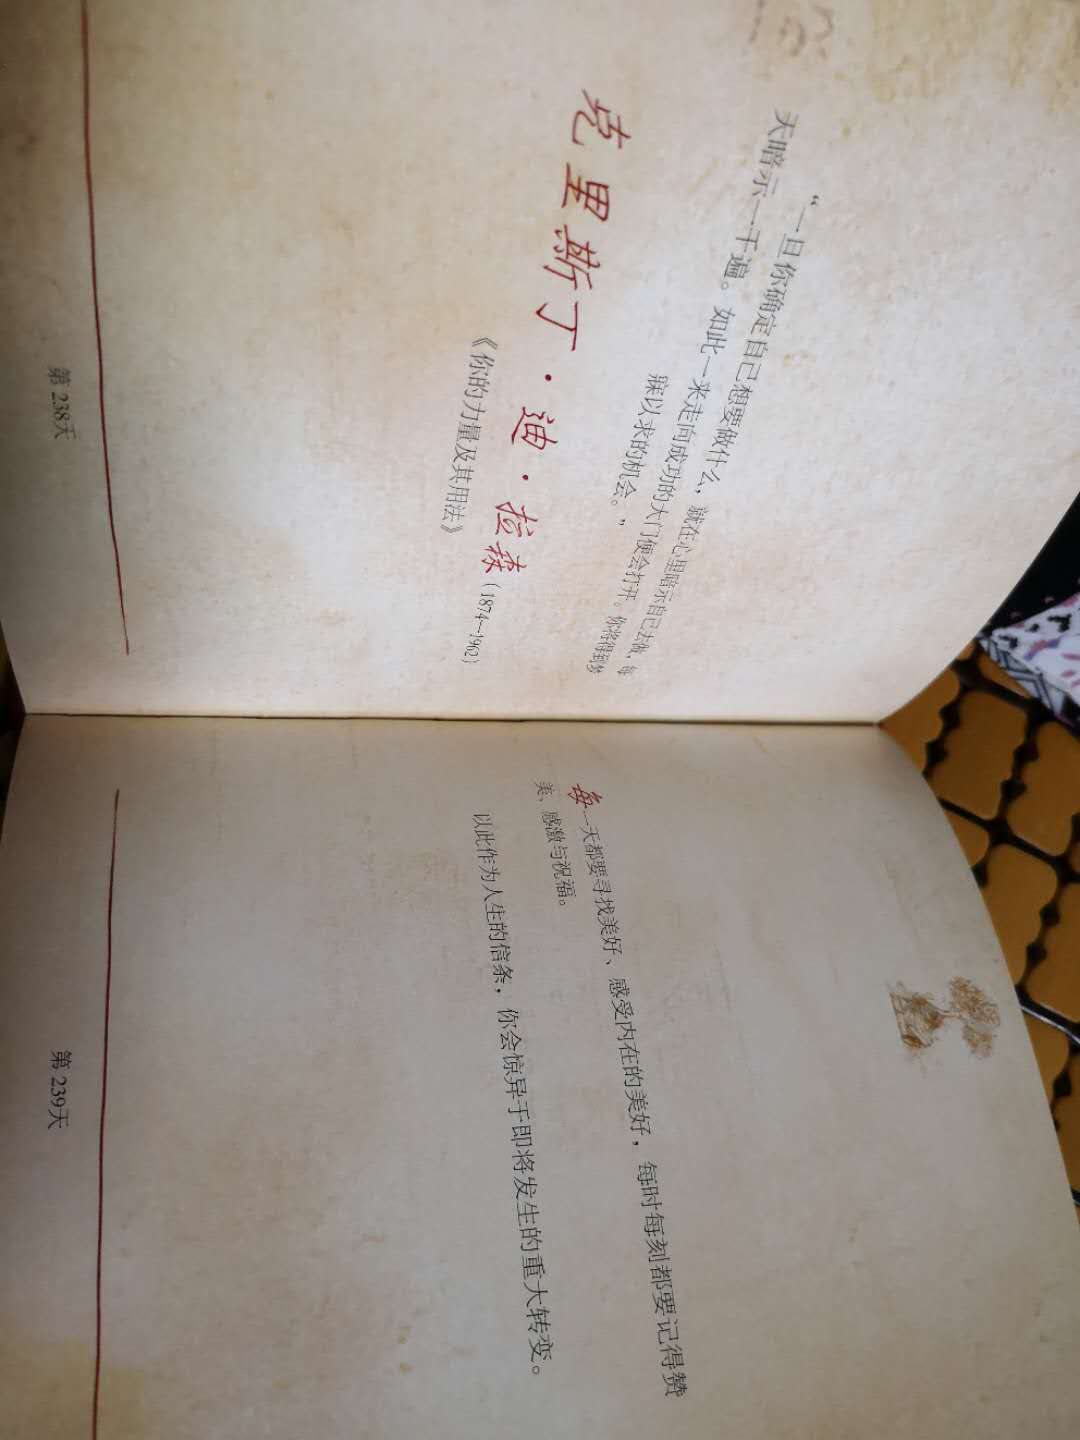 “一旦你确定自己想要做什么，就在心里暗示自己去做，每
天暗示一千遍。如此一来走向成功的大门便会打开。你将得到梦
寐以求的机会。”
克里斯丁·迪·拉森（1874—1962）
《你的力量及其用法》
第 238天
每一天都要寻找美好、感受内在的美好，每时每刻都要记得赞
美、感激与祝福。
以此作为人生的信条，你会惊异于即将发生的重大转变。
第 239天